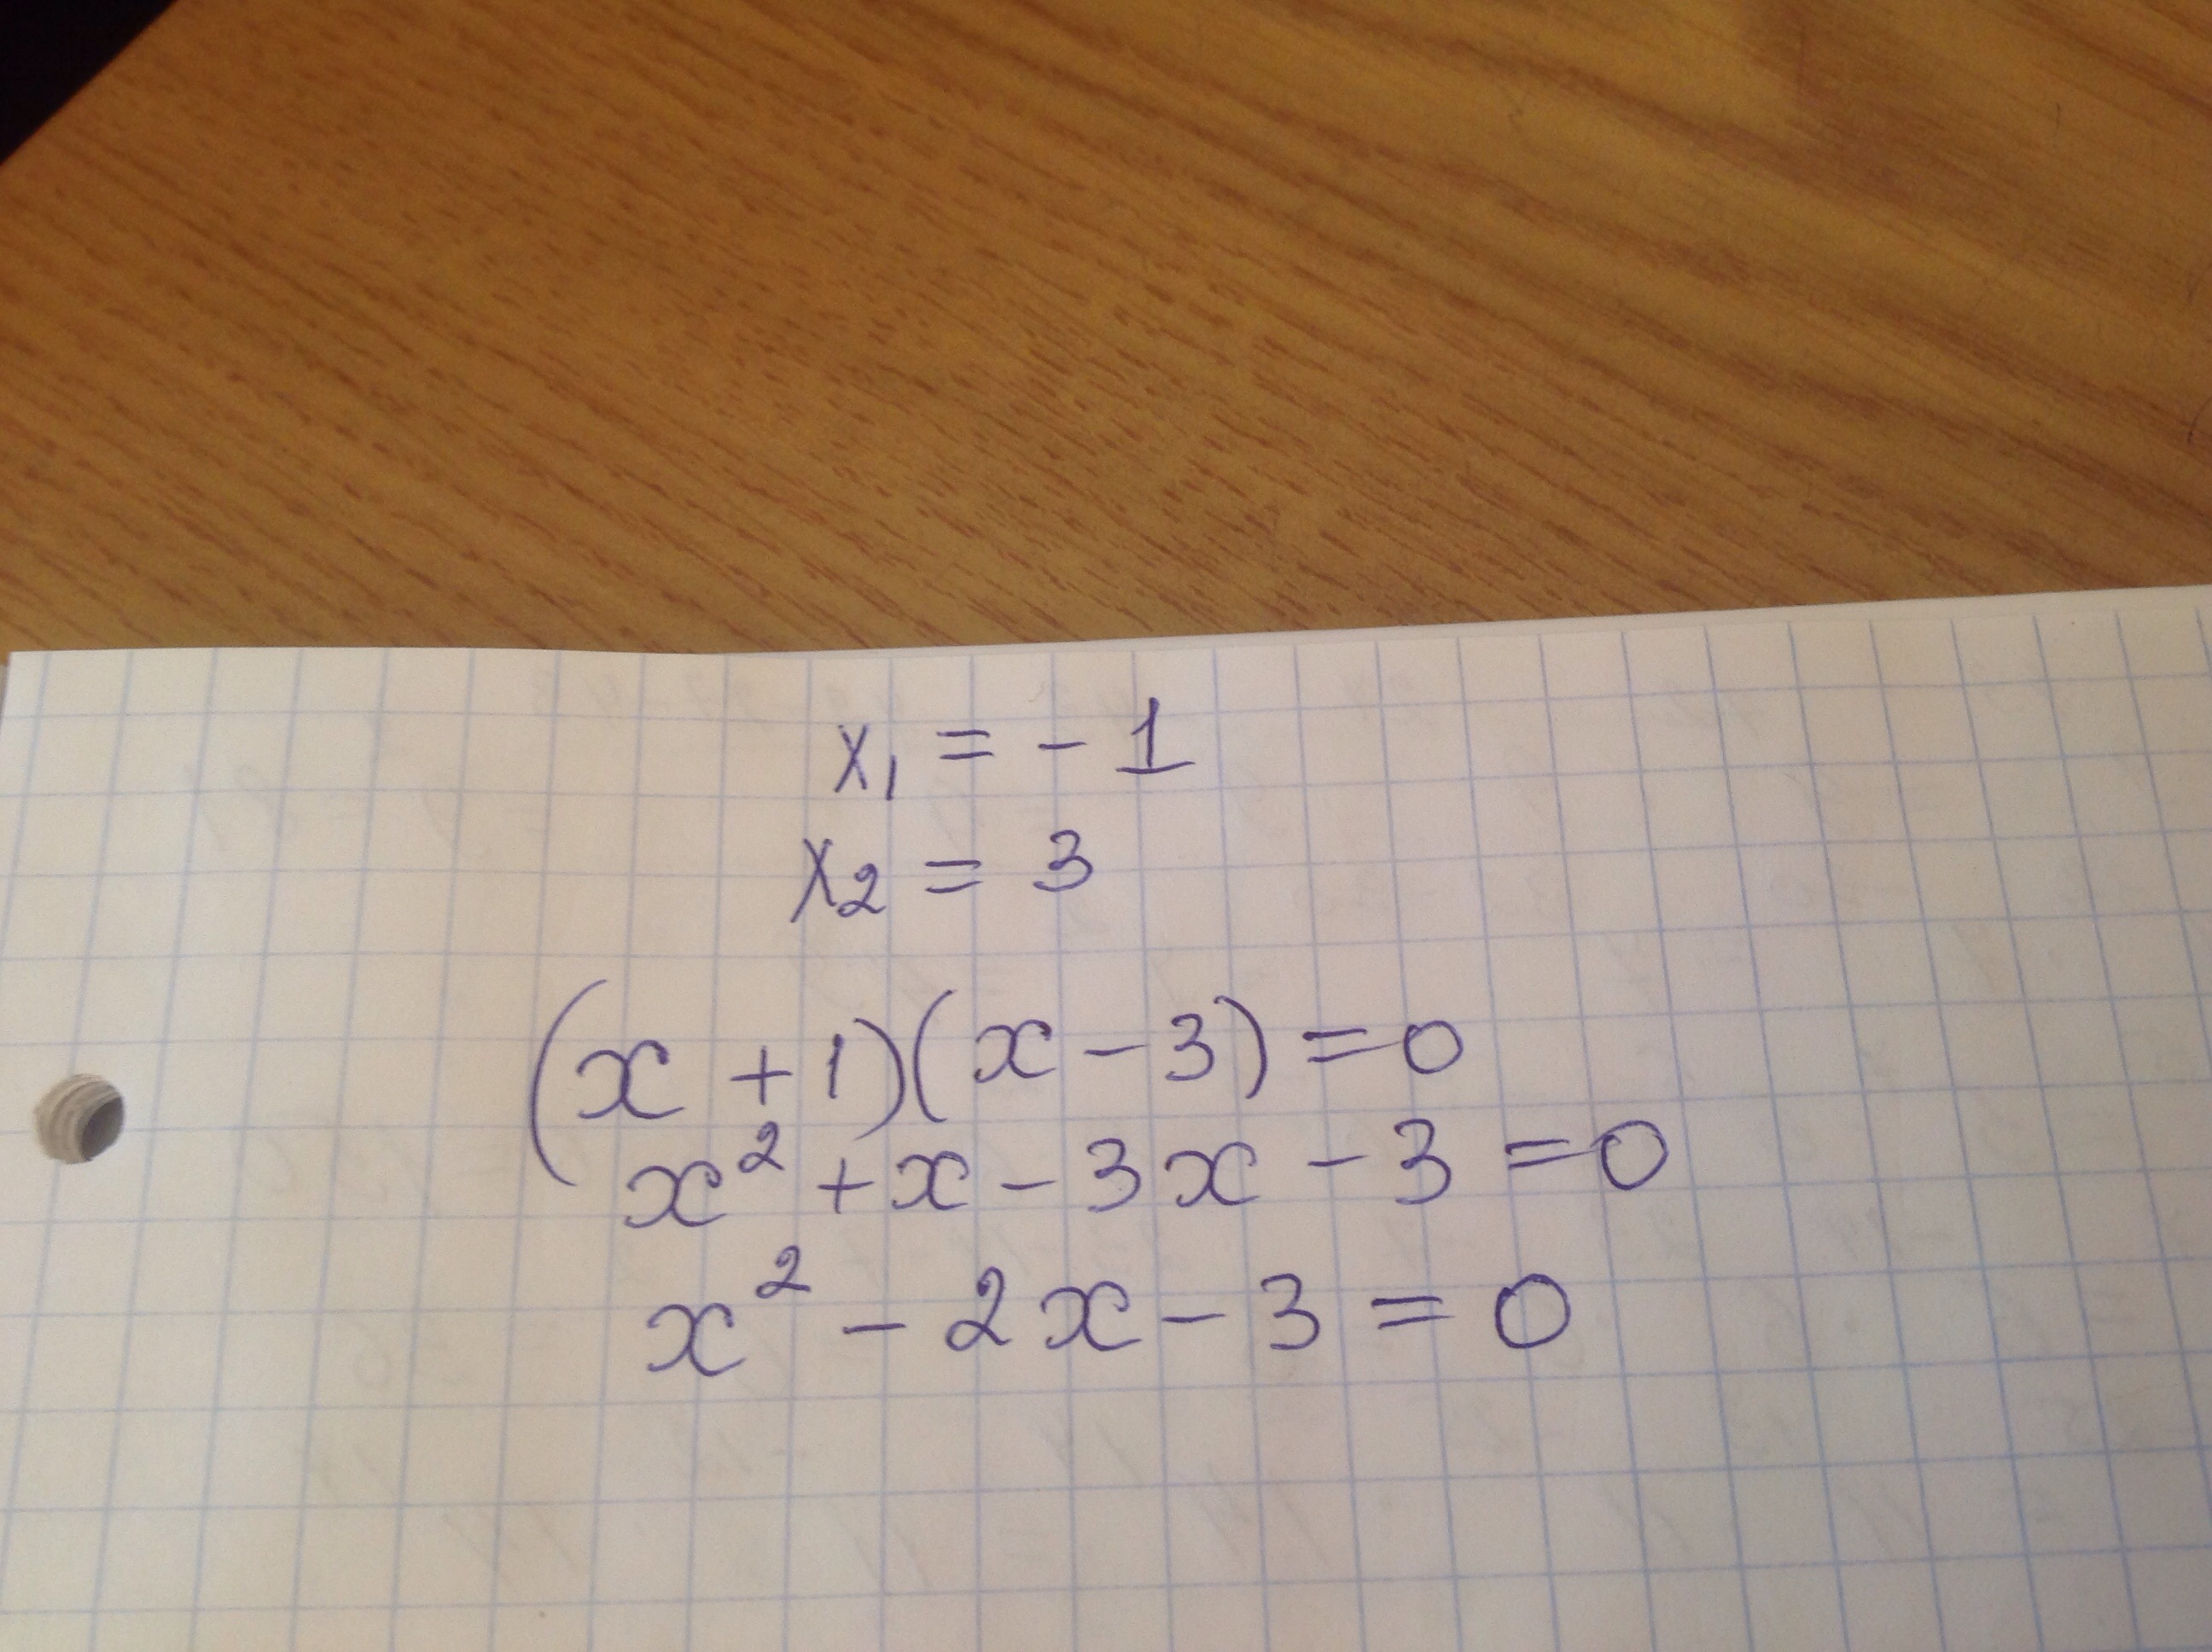 x₁ = - 1
x₂ = 3
(x + 1)(x - 3) = 0
x² + x - 3x - 3 = 0
x² - 2x - 3 = 0